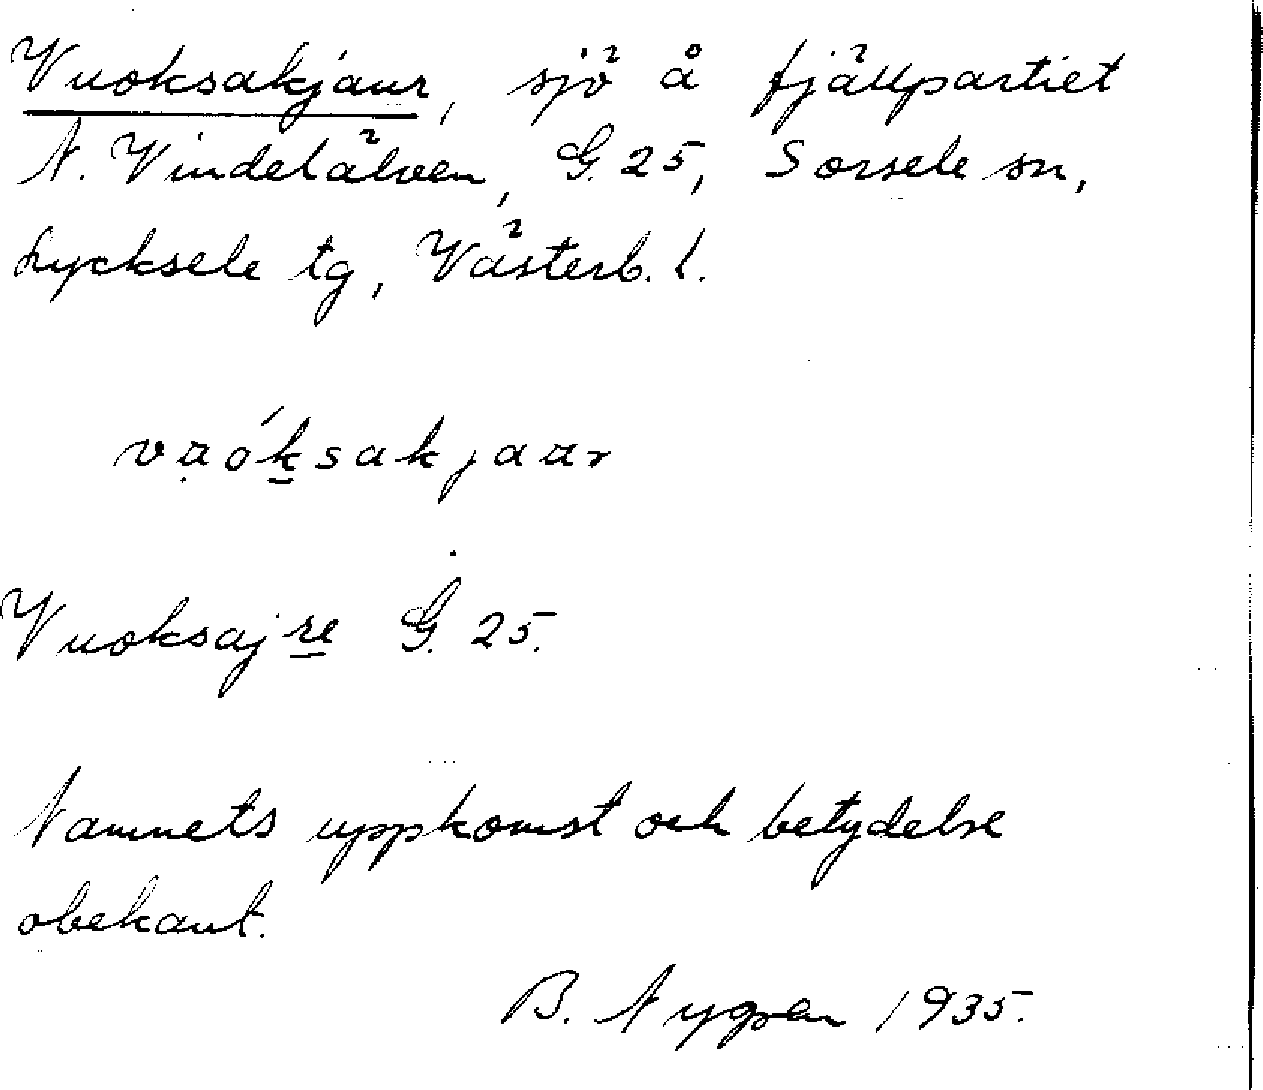 Vuoksakjaur, sjö å fjällpartiet
N. Vindelälven, G. 25, Sorsele sn,
Lycksele tg, Västerb. l.
vuóksakjaur
Vuoksajre G. 25.
Namnets uppkomst och betydelse
obekant.
B. Nygren 1935.